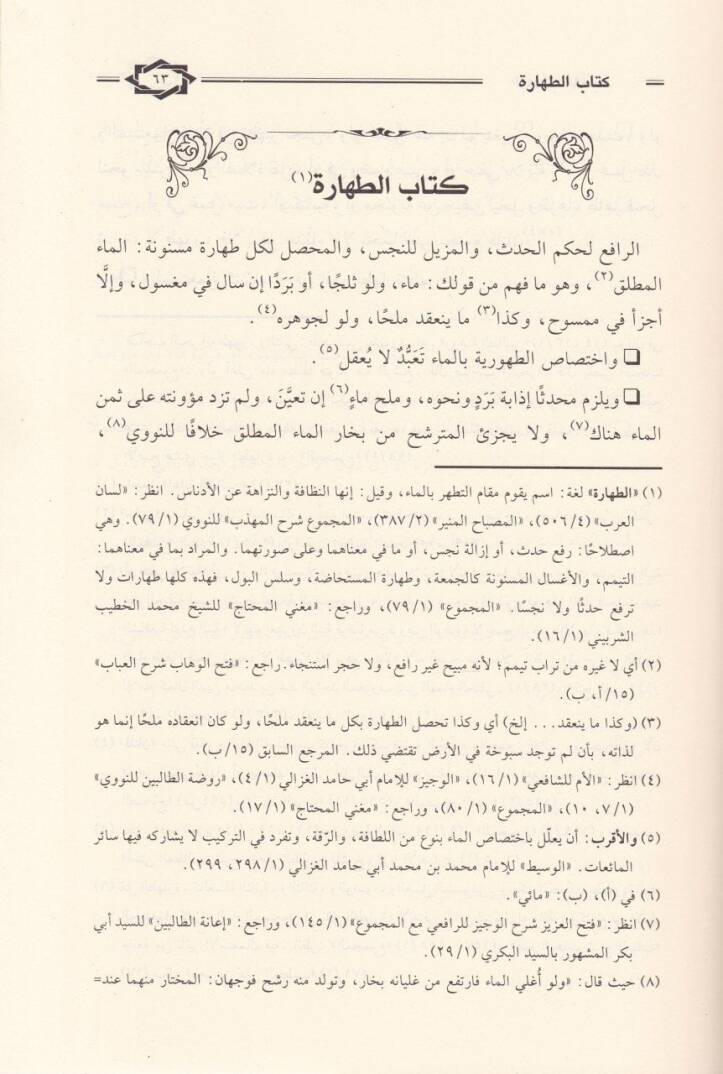 كتاب الطهارة
٦٣
كتاب الطهارة(١)
الرافع لحكم الحدث، والمزيل للنجس، والمحصل لكل طهارة مسنونة: الماء
المطلق(٢)، وهو ما فهم من قولك: ماء، ولو ثلجًا، أو بَرَدًا إن سال في مغسول، وإلَّا
أجزأ في ممسوح، وكذا(٣) ما ينعقد ملحًا، ولو لجوهره(٤).
❑ واختصاص الطهورية بالماء تَعَبُّدٌ لا يُعقل(٥).
❑ ويلزم محدثًا إذابة بَرَدٍ ونحوه، وملح ماءٍ(٦) إن تعيَّنَ، ولم تزد مؤونته على ثمن
الماء هناك(٧)، ولا يجزئ المترشح من بخار الماء المطلق خلافًا للنووي(٨)،
(١) «الطهارة» لغة: اسم يقوم مقام التطهر بالماء، وقيل: إنها النظافة والنزاهة عن الأدناس. انظر: «لسان
العرب» (٥٠٦/٤)، «المصباح المنير» (٣٨٧/٢)، «المجموع شرح المهذب» للنووي (٧٩/١). وهي
اصطلاحًا: رفع حدث، أو إزالة نجس، أو ما في معناهما وعلى صورتهما. والمراد بما في معناهما:
التيمم، والأغسال المسنونة كالجمعة، وطهارة المستحاضة، وسلس البول، فهذه كلها طهارات ولا
ترفع حدثًا ولا نجسًا. «المجموع» (٧٩/١)، وراجع: «مغني المحتاج» للشيخ محمد الخطيب
الشربيني (١٦/١).
(٢) أي لا غيره من تراب تيمم؛ لأنه مبيح غير رافع، ولا حجر استنجاء. راجع: «فتح الوهاب شرح العباب»
(١٥/أ، ب).
(٣) (وكذا ما ينعقد... إلخ) أي وكذا تحصل الطهارة بكل ما ينعقد ملحًا، ولو كان انعقاده ملحًا إنما هو
لذاته، بأن لم توجد سبوخة في الأرض تقتضي ذلك. المرجع السابق (١٥/ب).
(٤) انظر: «الأم للشافعي» (١٦/١)، «الوجيز» للإمام أبي حامد الغزالي (٤/١)، «روضة الطالبين للنووي»
(٧/١، ١٠)، «المجموع» (٨٠/١)، وراجع: «مغني المحتاج» (١٧/١).
(٥) والأقرب: أن يعلّل باختصاص الماء بنوع من اللطافة، والرّقة، وتفرد في التركيب لا يشاركه فيها سائر
المائعات. «الوسيط» للإمام محمد بن محمد أبي حامد الغزالي (٢٩٨/١، ٢٩٩).
(٦) في (أ)، (ب): «مائي».
(٧) انظر: «فتح العزيز شرح الوجيز للرافعي مع المجموع» (١٤٥/١)، وراجع: «إعانة الطالبين» للسيد أبي
بكر المشهور بالسيد البكري (٢٩/١).
(٨) حيث قال: «ولو أُغلي الماء فارتفع من غليانه بخار، وتولد منه رشح فوجهان: المختار منهما عند=